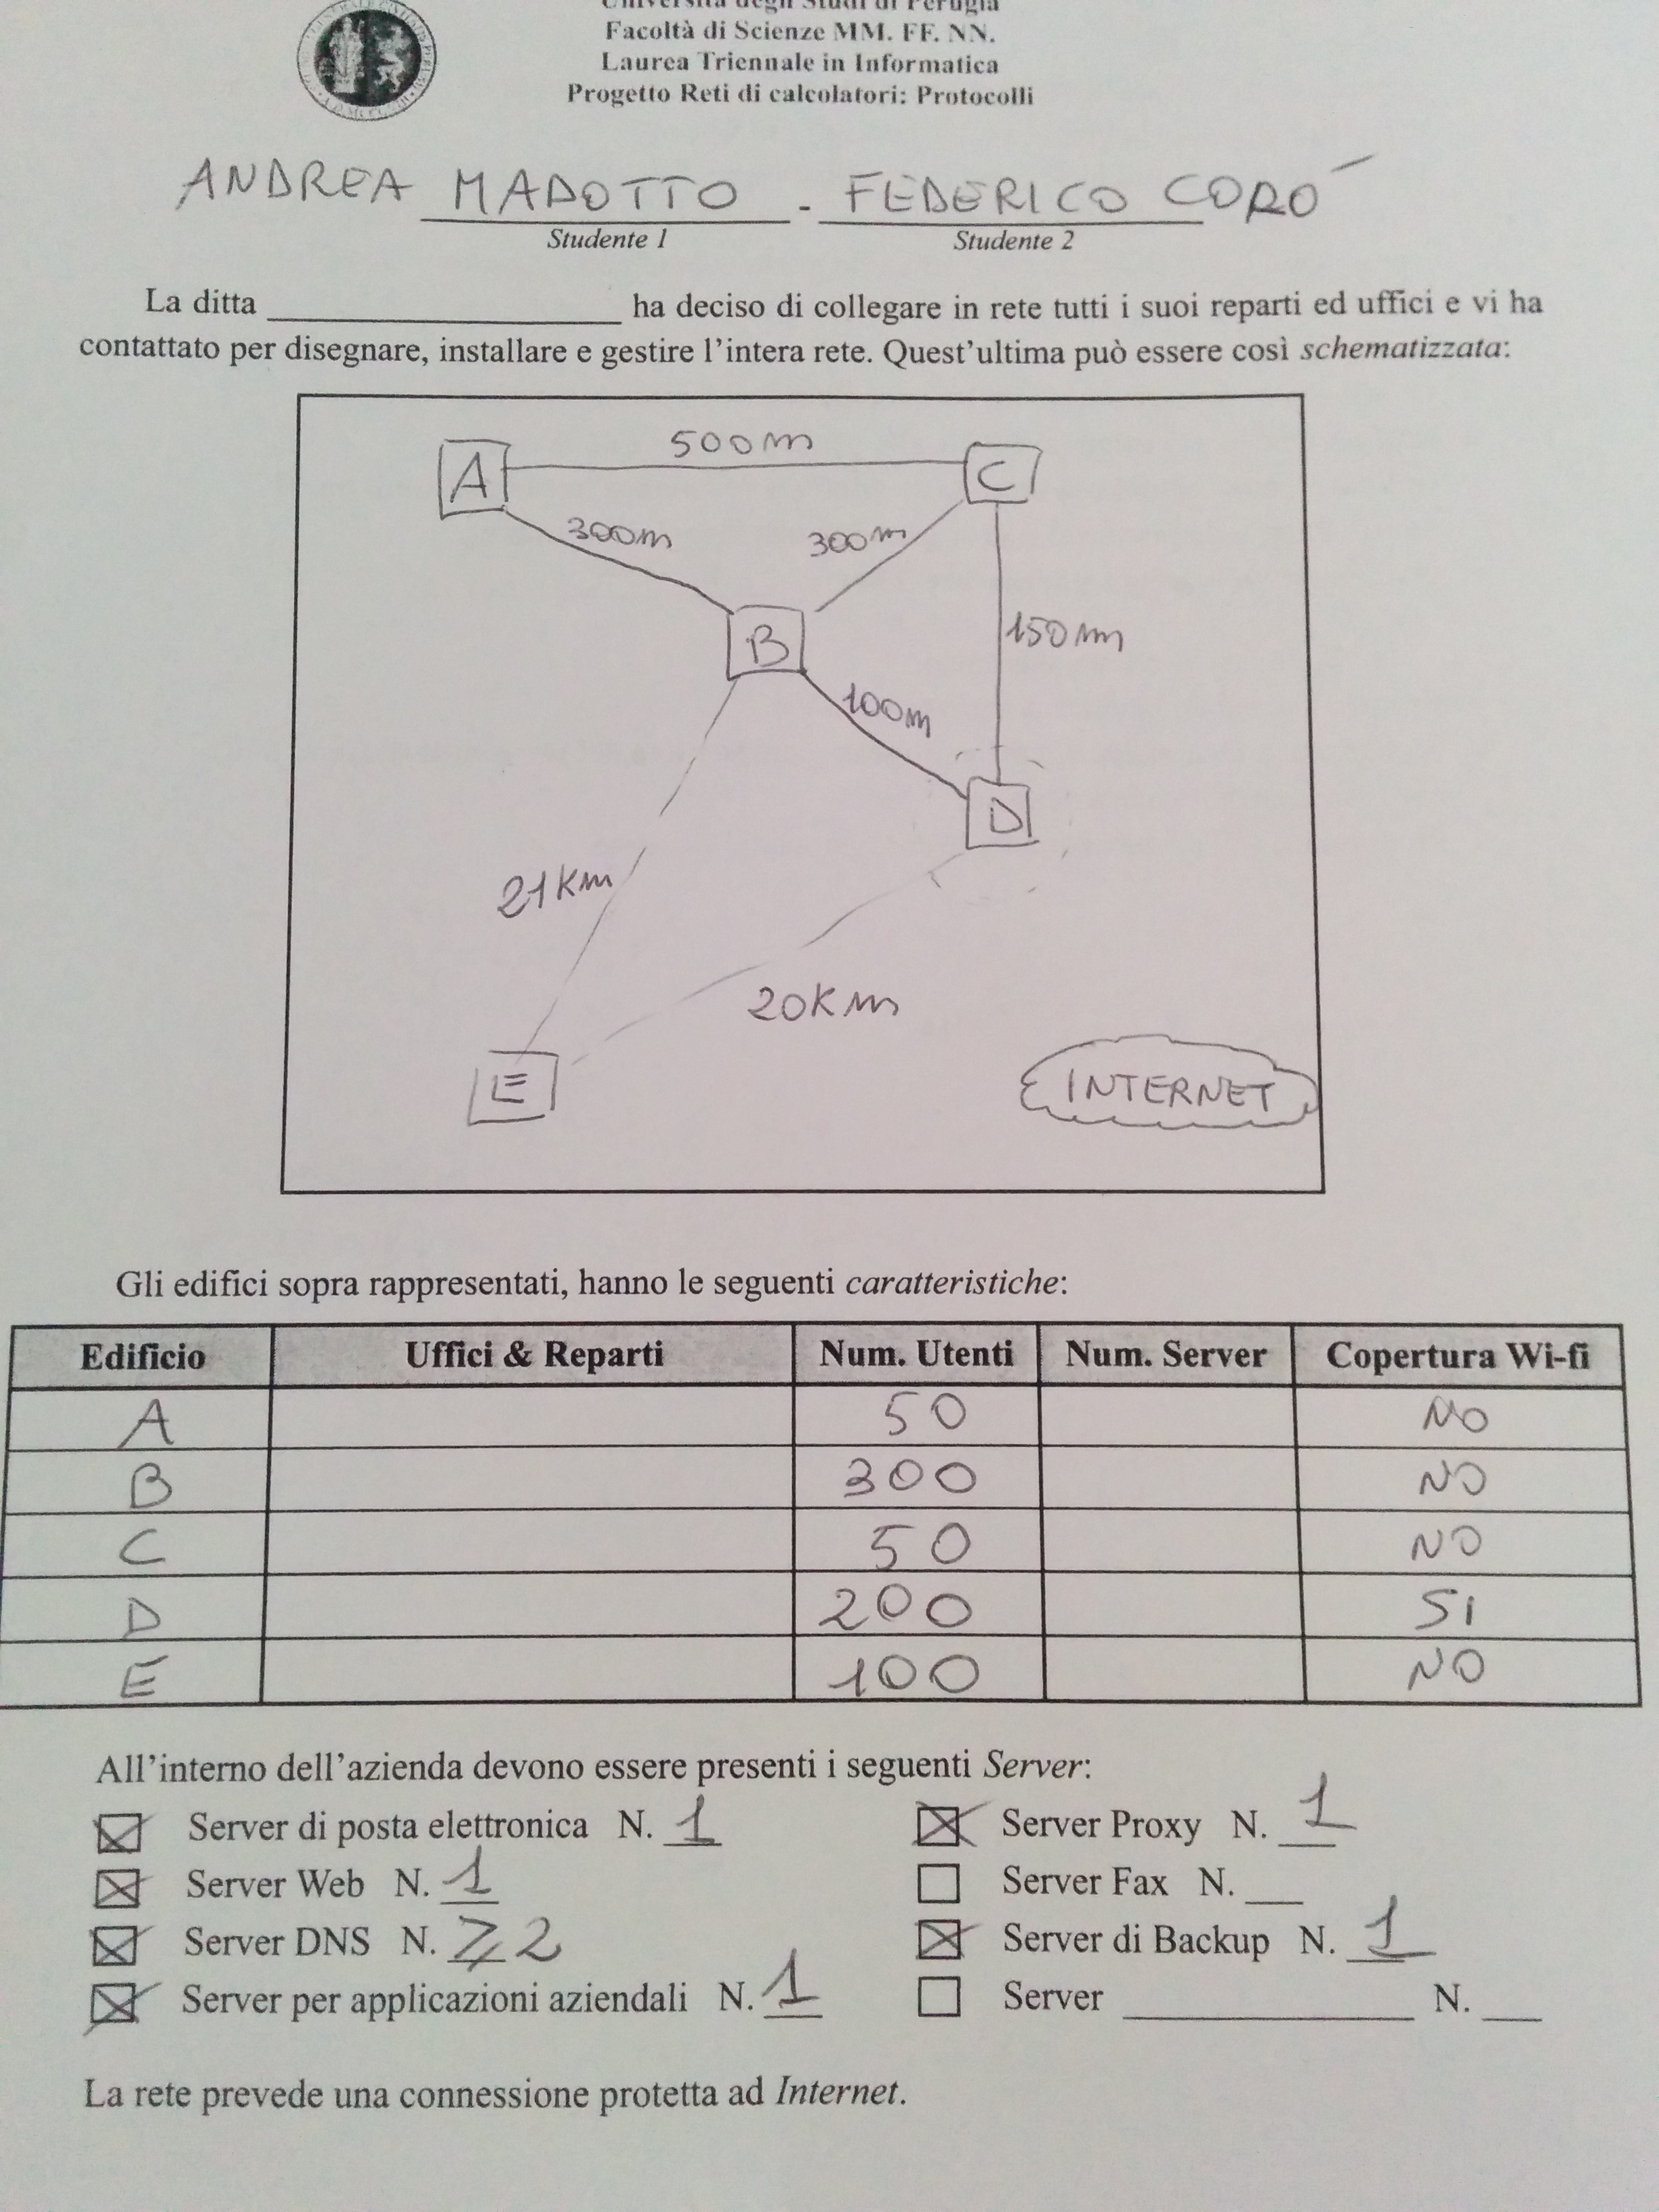 Università degli Studi di Perugia
Facoltà di Scienze MM. FF. NN.
Laurea Triennale in Informatica
Progetto Reti di calcolatori: Protocolli
ANDREA MADOTTO - FEDERICO CORÓ
Studente 1 Studente 2
La ditta ____________________ ha deciso di collegare in rete tutti i suoi reparti ed uffici e vi ha
contattato per disegnare, installare e gestire l'intera rete. Quest'ultima può essere così schematizzata:
500m
A C
300m 300m
B 150m
100m
D
21Km
20Km
E INTERNET
Gli edifici sopra rappresentati, hanno le seguenti caratteristiche:
Edificio Uffici & Reparti Num. Utenti Num. Server Copertura Wi-fi
A 50 NO
B 300 NO
C 50 NO
D 200 SI
E 100 NO
All'interno dell'azienda devono essere presenti i seguenti Server:
Server di posta elettronica N. 1 Server Proxy N. 1
Server Web N. 1 Server Fax N. ___
Server DNS N. ≥2 Server di Backup N. 1
Server per applicazioni aziendali N. 1 Server ________________ N. ___
La rete prevede una connessione protetta ad Internet.